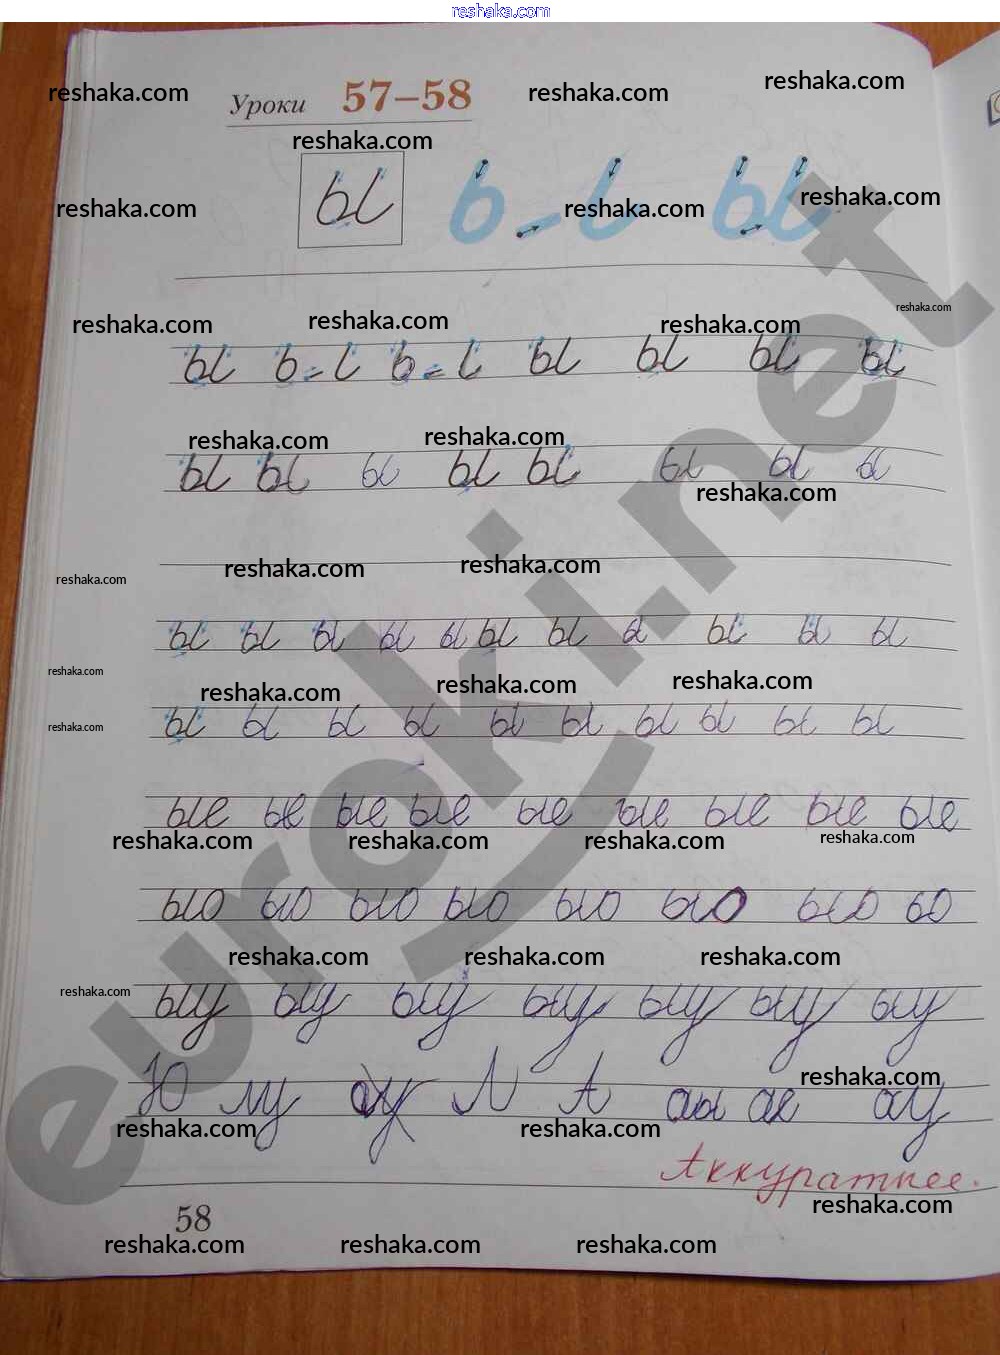 reshaka.com
Уроки 57–58
ы ь - ı ы
ы ь - ı ь - ı ы ы ы ы
ы ы ы ы ы ы ы ы
ы ы ы ы ы ы ы ы ы ы ы
ы ы ы ы ы ы ы ы ы ы
ые ые ые ые ые ые ые ые ые
ыо ыо ыо ыо ыо ыо ыо
ыу ыу ыу ыу ыу ыу ыу
Ю му Л А аы ае ау
Аккуратнее.
58
euroki.net